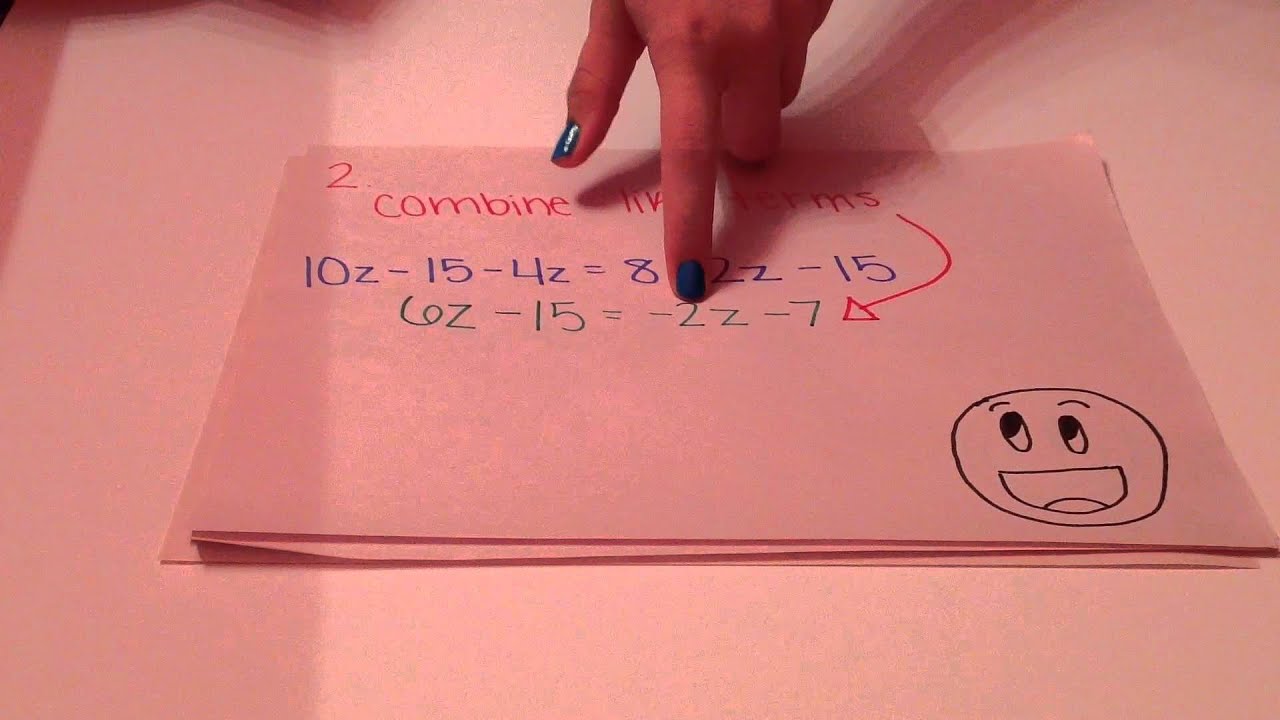 2.
combine terms
10z - 15 - 4z = 8 2z - 15
6z - 15 = -2z - 7